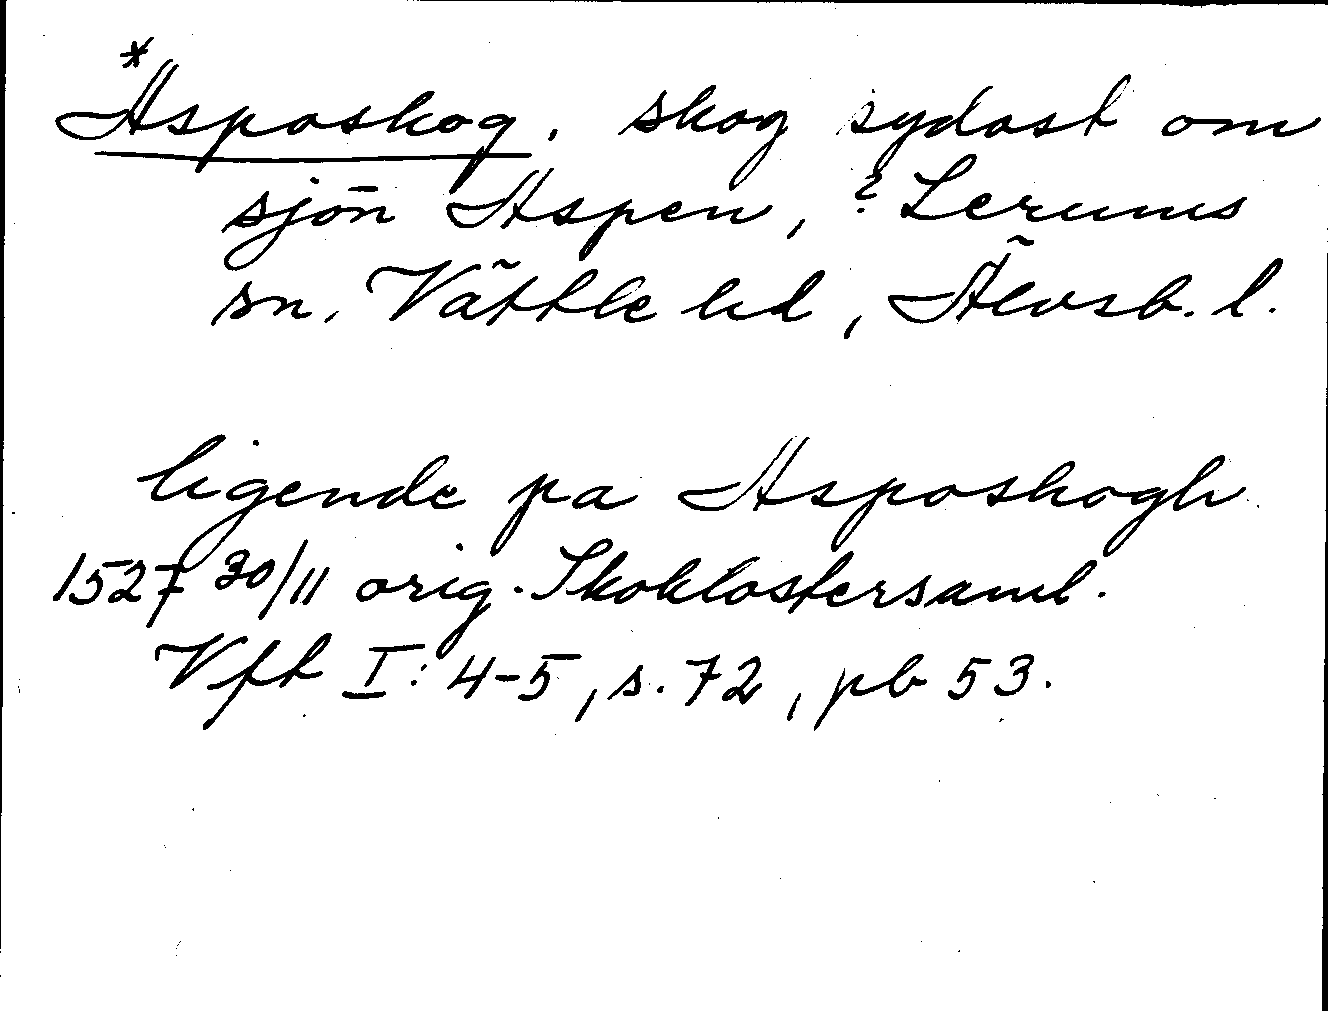 *Asposkog, skog sydost om
sjön Aspen, ? Lerums
sn, Vättle hd, Älvsb. l.
ligende pa Asposkogh
1527 30/11 orig. Skoklostersaml.
Vft I: 4-5, s. 72, pb 53.